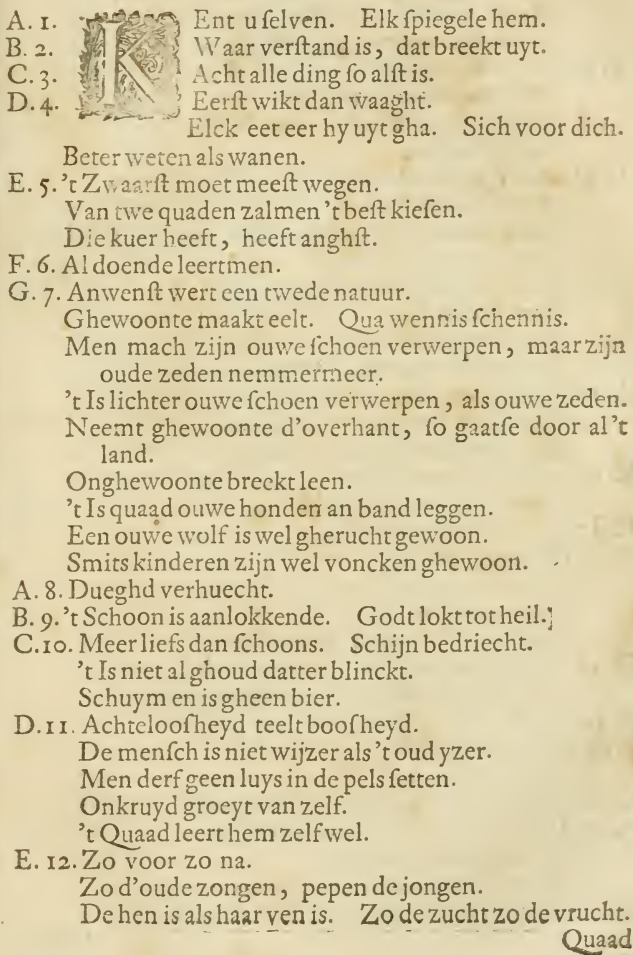 A. 1. KEnt u ſelven. Elk ſpiegele hem.
B. 2. Waar verſtand is, dat breekt uyt.
C. 3. Acht alle ding ſo alſt is.
D. 4. Eerſt wikt dan waaght.
Elck eet eer hy uyt gha. Sich voor dich.
Beter weten als wanen.
E. 5. 't Zwaarſt moet meeſt wegen.
Van twe quaden zalmen 't beſt kieſen.
Die kuer heeft, heeft anghſt.
F. 6. Al doende leertmen.
G. 7. Anwenſt wert een twede natuur.
Ghewoonte maakt eelt. Qua wennis ſchennis.
Men mach zijn ouwe ſchoen verwerpen, maar zijn
oude zeden nemmermeer.
't Is lichter ouwe ſchoen verwerpen, als ouwe zeden.
Neemt ghewoonte d'overhant, ſo gaatſe door al 't
land.
Onghewoonte breekt leen.
't Is quaad ouwe honden an band leggen.
Een ouwe wolf is wel gherucht gewoon.
Smits kinderen zijn wel voncken ghewoon.
A. 8. Dueghd verhuecht.
B. 9. 't Schoon is aanlokkende. Godt lokt tot heil.]
C. 10. Meer liefs dan ſchoons. Schijn bedriecht.
't Is niet al ghoud datter blinckt.
Schuym en is gheen bier.
D. 11. Achteloofheyd teelt boofheyd.
De menſch is niet wijzer als 't oud yzer.
Men derf geen luys in de pels ſetten.
Onkruyd groeyt van zelf.
't Quaad leert hem zelf wel.
E. 12. Zo voor zo na.
Zo d'oude zongen, pepen de jongen.
De hen is als haar ven is. Zo de zucht zo de vrucht.
Quaad